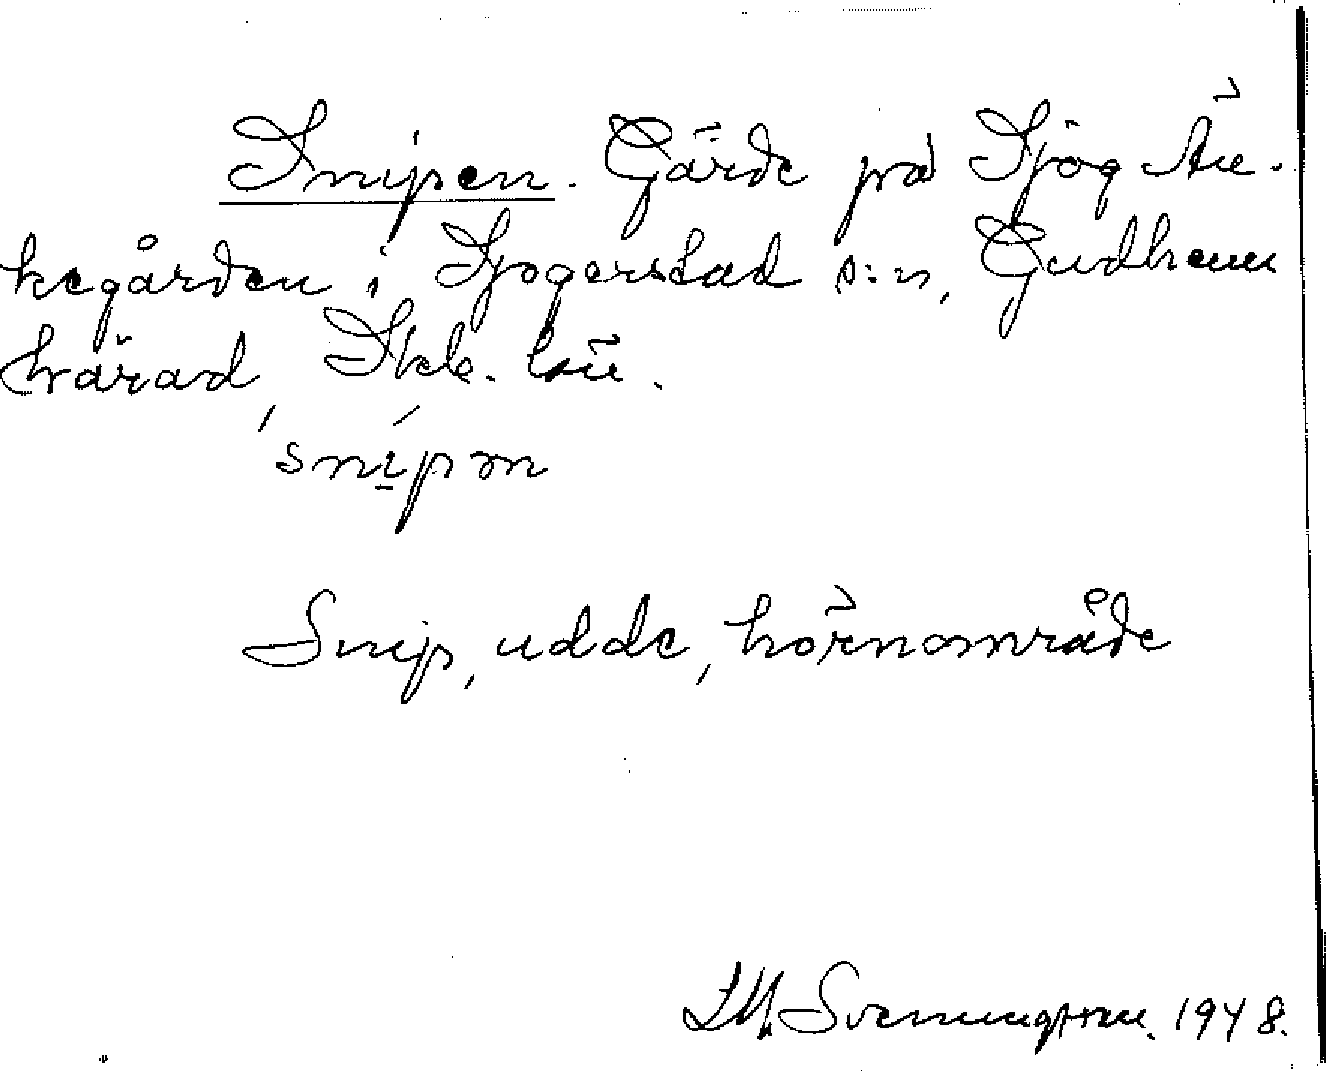 Snipen. Gärde på Sjög Än-
kegården i Sjogerstad s:n, Gudhem
härad, Skb. län.
snipm
Snip, udde, hörnområde
Svenungsson. 1948.